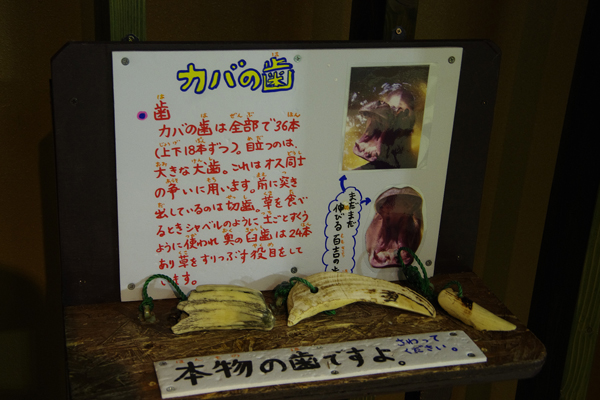 カバの歯
歯
カバの歯は全部で36本
(上下18本ずつ)。目立つのは、
大きな犬歯。これはオス同士
の争いに用います。前に突き
出しているのは切歯。草を食べ
るときシャベルのように土ごとすくう
ように使われ 奥の臼歯は24本
あり草をすりつぶす役目をして
います。
まだまだ
伸びる 百吉の
本物の歯ですよ。
さわって
ください。